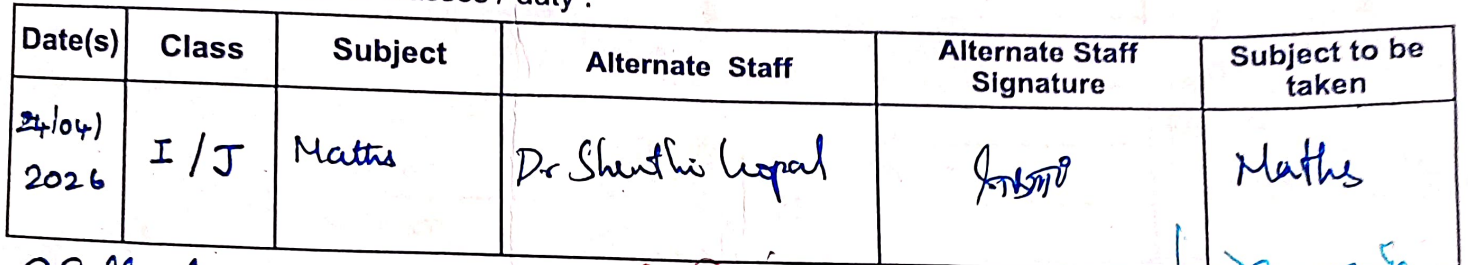 duty :
Date(s) Class Subject Alternate Staff Alternate Staff Signature Subject to be taken
24/04/ 2026 I / J Maths Dr Shenthi Gopal Maths